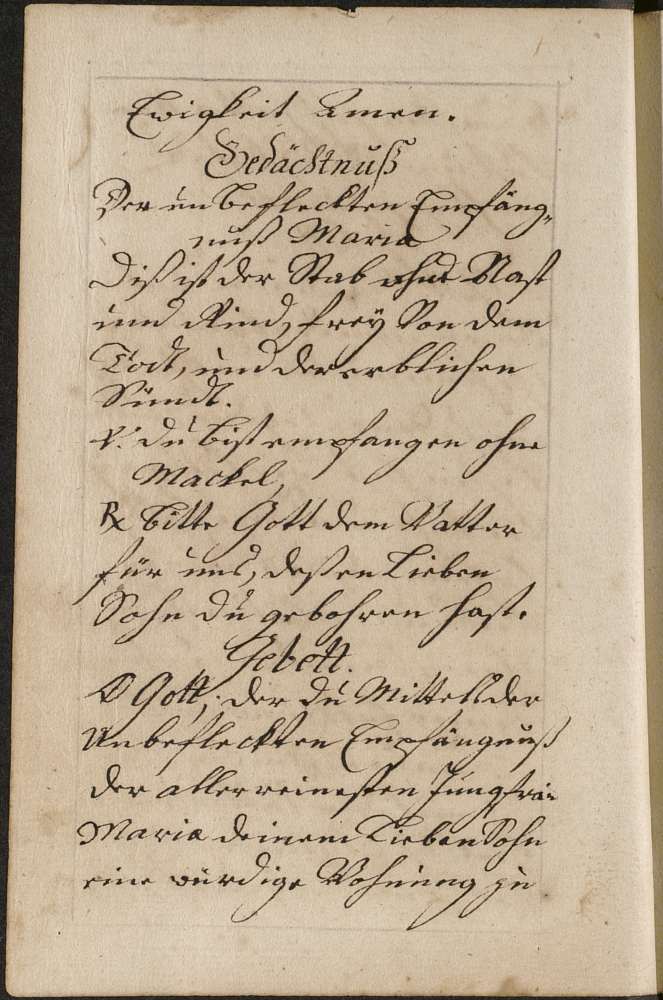 Ewigkeit Amen.
Gedächtnuß
Der unbefleckten Empfäng„
nuß Mariæ
Diß ist der Stab ohne Nast
und Rind, frey Von dem
Todt, und der erblichen
Sündt.
V. du bist empfangen ohne
Mackel,
R bitte Gott dem Vatter
für uns, deßen Lieben
Sohn du gebohren hast.
Gebett.
O Gott, der du Mittelß der
Unbefleckten Empfängnuß
der allerreinesten Jungfrau
Mariæ deinem Lieben Sohn
eine würdige Wohnung zu